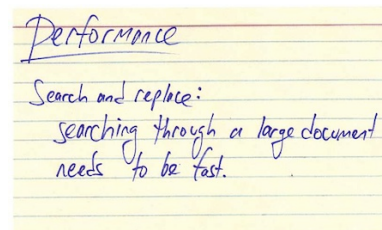 Performance
Search and replace:
searching through a large document
needs to be fast.